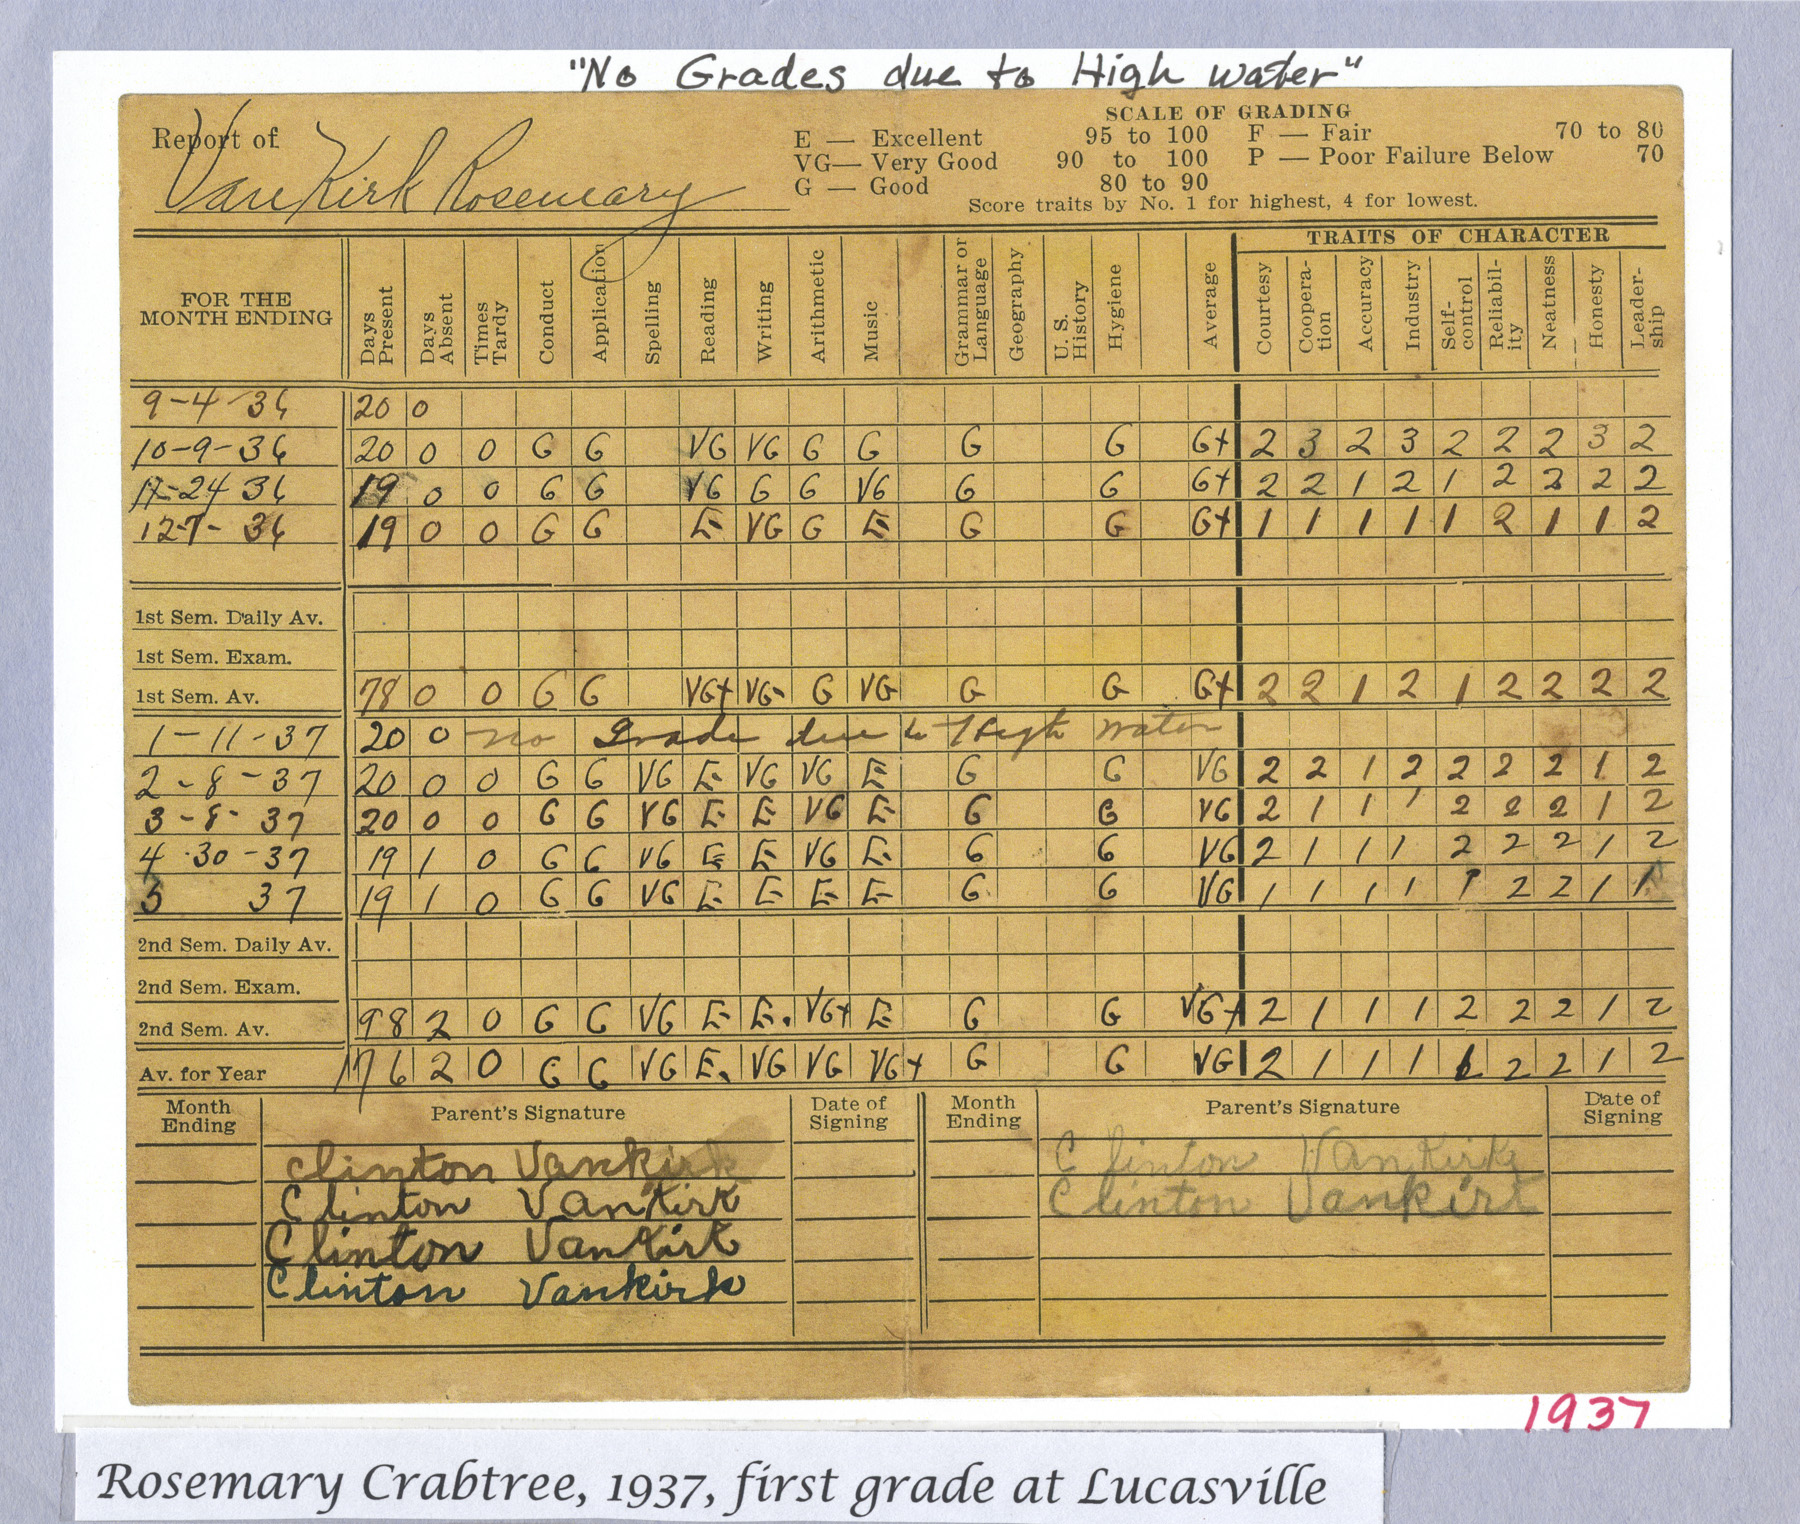 "No Grades due to High water"
Report of
VanKirk Rosemary
SCALE OF GRADING
E — Excellent 95 to 100 F — Fair 70 to 80
VG— Very Good 90 to 100 P — Poor Failure Below 70
G — Good 80 to 90
Score traits by No. 1 for highest, 4 for lowest.
TRAITS OF CHARACTER
FOR THE MONTH ENDING Days Present Days Absent Times Tardy Conduct Application Spelling Reading Writing Arithmetic Music Grammar or Language Geography U. S. History Hygiene Average Courtesy Coopera-tion Accuracy Industry Self-control Reliabil-ity Neatness Honesty Leader-ship
9-4-36 20 0
10-9-36 20 0 0 G G VG VG G G G G G+ 2 3 2 3 2 2 2 3 2
24 36 19 0 0 G G VG G G VG G G G+ 2 2 1 2 1 2 2 2 2
12-7-36 19 0 0 G G E VG G E G G G+ 1 1 1 1 1 2 1 1 2
1st Sem. Daily Av.
1st Sem. Exam.
1st Sem. Av. 78 0 0 G G VG+ VG- G VG G G G+ 2 2 1 2 1 2 2 2 2
1-11-37 20 0 no Grade due to High water
2-8-37 20 0 0 G G VG E VG VG E G G VG 2 2 1 2 2 2 2 1 2
3-8-37 20 0 0 G G VG E E VG E G G VG 2 1 1 1 2 2 2 1 2
4-30-37 19 1 0 G G VG E E VG E G G VG 2 1 1 1 2 2 2 1 2
5 37 19 1 0 G G VG E E E E G G VG 1 1 1 1 1 2 2 1 1
2nd Sem. Daily Av.
2nd Sem. Exam.
2nd Sem. Av. 98 2 0 G G VG E E. VG+ E G G VG+ 2 1 1 1 2 2 2 1 2
Av. for Year 176 2 0 G G VG E. VG VG VG+ G G VG 2 1 1 1 1 2 2 1 2
Month Ending Parent's Signature Date of Signing Month Ending Parent's Signature Date of Signing
Clinton Vankirk Clinton Vankirk
Clinton Vankirk Clinton Vankirk
Clinton Vankirk
Clinton Vankirk
1937
Rosemary Crabtree, 1937, first grade at Lucasville